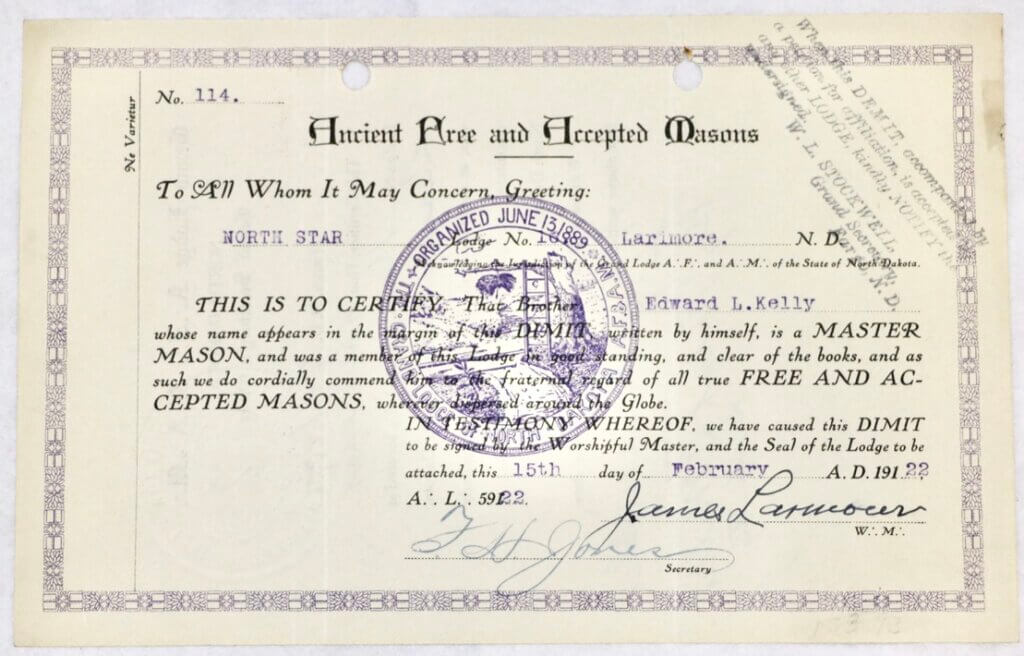 When this DEMIT, accompanied by
a petition for affiliation, is accepted
any other LODGE, kindly NOTIFY the
undersigned.
W. L. STOCKWELL,
Grand Secretary,
N. D.
Ne Varietur
No. 114.
Ancient Free and Accepted Masons
To All Whom It May Concern, Greeting:
NORTH STAR Lodge No. Larimore. N. D.
Acknowledging the Jurisdiction of the Grand Lodge A∴F∴ and A∴M∴ of the State of North Dakota.
THIS IS TO CERTIFY, That Brother Edward L.Kelly
whose name appears in the margin of this DIMIT, written by himself, is a MASTER
MASON, and was a member of this Lodge in good standing, and clear of the books, and as
such we do cordially commend him to the fraternal regard of all true FREE AND AC-
CEPTED MASONS, wherever dispersed around the Globe.
IN TESTIMONY WHEREOF, we have caused this DIMIT
to be signed by the Worshipful Master, and the Seal of the Lodge to be
attached, this 15th day of February A. D. 191 22
A∴ L∴ 59122.
James Larmour
W∴ M∴
F H Jones
Secretary
ORGANIZED JUNE 13, 1889
GRAND LODGE OF NORTH